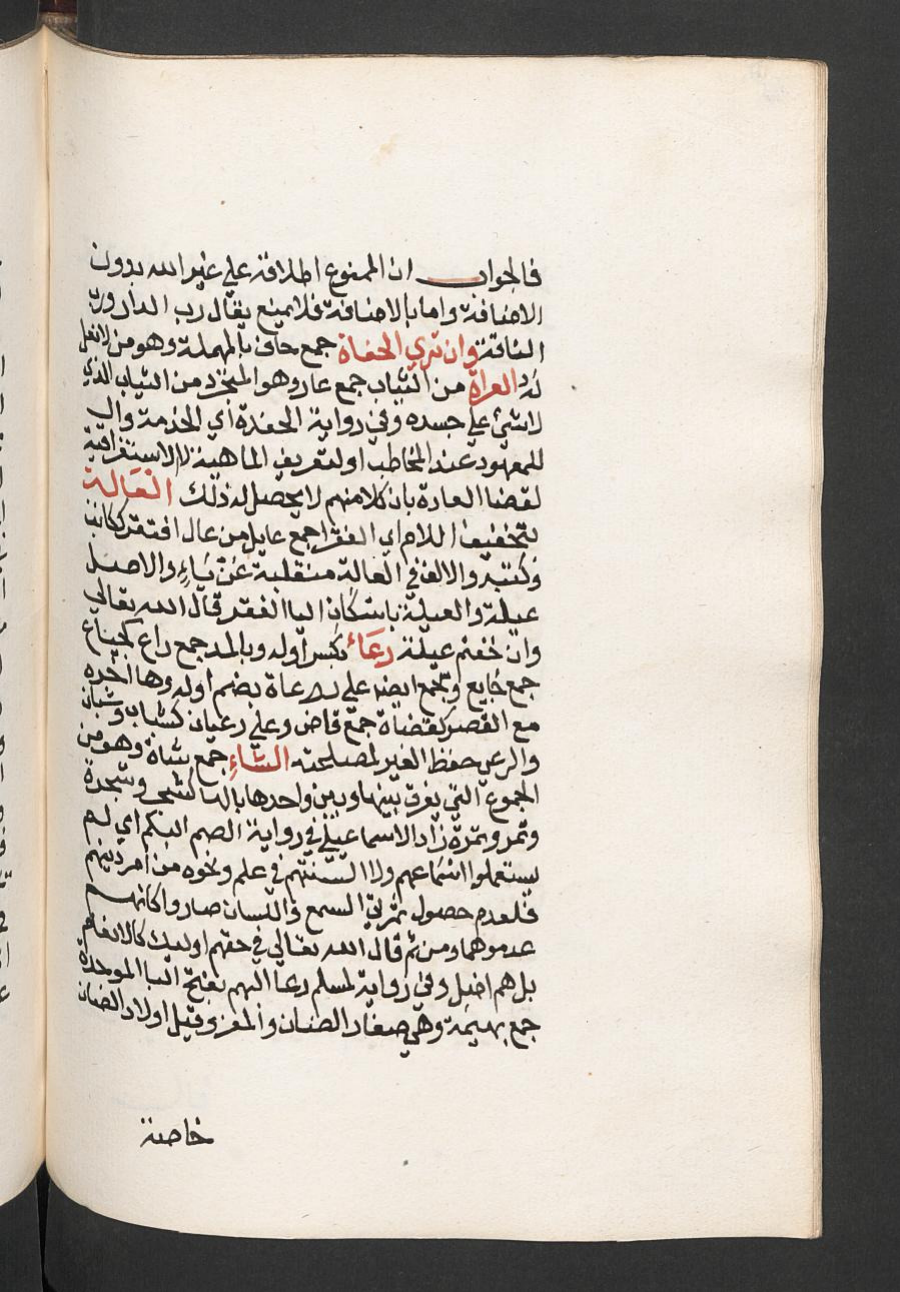 فالجواب ان الممنوع اطلاقه علي غير الله بدون
الاضافة واما بالاضافة فلا يمنع يقال رب الدار ورب
الناقة وان تري الحفاة جمع حاف بالمهملة وهو من لا نعل
له العراة من الثياب جمع عار وهو المتجرد من الثياب الذي
لا شئ علي جسده وفي رواية الحفدة اي الخدمة وال
للمعهود عند المخاطب او لتعريف الماهية لا للاستغراقية
لقضا العادة بان كلا منهم لا يحصل له ذلك العالة
بتخفيف اللام اي الفقرا جمع عايل من عال افتقر ككاتب
وكتبه والالف في العالة منقلبة عن ياء والاصل
عيلة والعيلة باسكان اليا الفقر قال الله تعالي
وان خفتم عيلة رعاء بكسر اوله وبالمد جمع راع كجياع
جمع جايع ويجمع ايضا علي رعاة بضم اوله وها اخره
مع القصر كقضاة جمع قاض وعلي رعيان كشاب وشبان
والرعي حفظ الغير لمصلحته الشاء جمع شاة وهو من
الجموع التي يفرق بينها وبين واحدها بالها كشجر وشجرة
وتمر وتمرة زاد الاسماعيلي في رواية الصم البكم اي لم
يستعملوا اسماعهم ولا السنتهم في علم ونحوه من امر دينهم
فلعدم حصول ثمرتي السمع واللسان صاروا كانهم
عدموهما ومن ثم قال الله تعالي في حقهم اوليك كالانعام
بل هم اضل وفي رواية لمسلم رعا البهم بفتح البا الموحدة
جمع بهيمة وهي صغار الضان والمعز وقيل اولاد الضان
خاصة